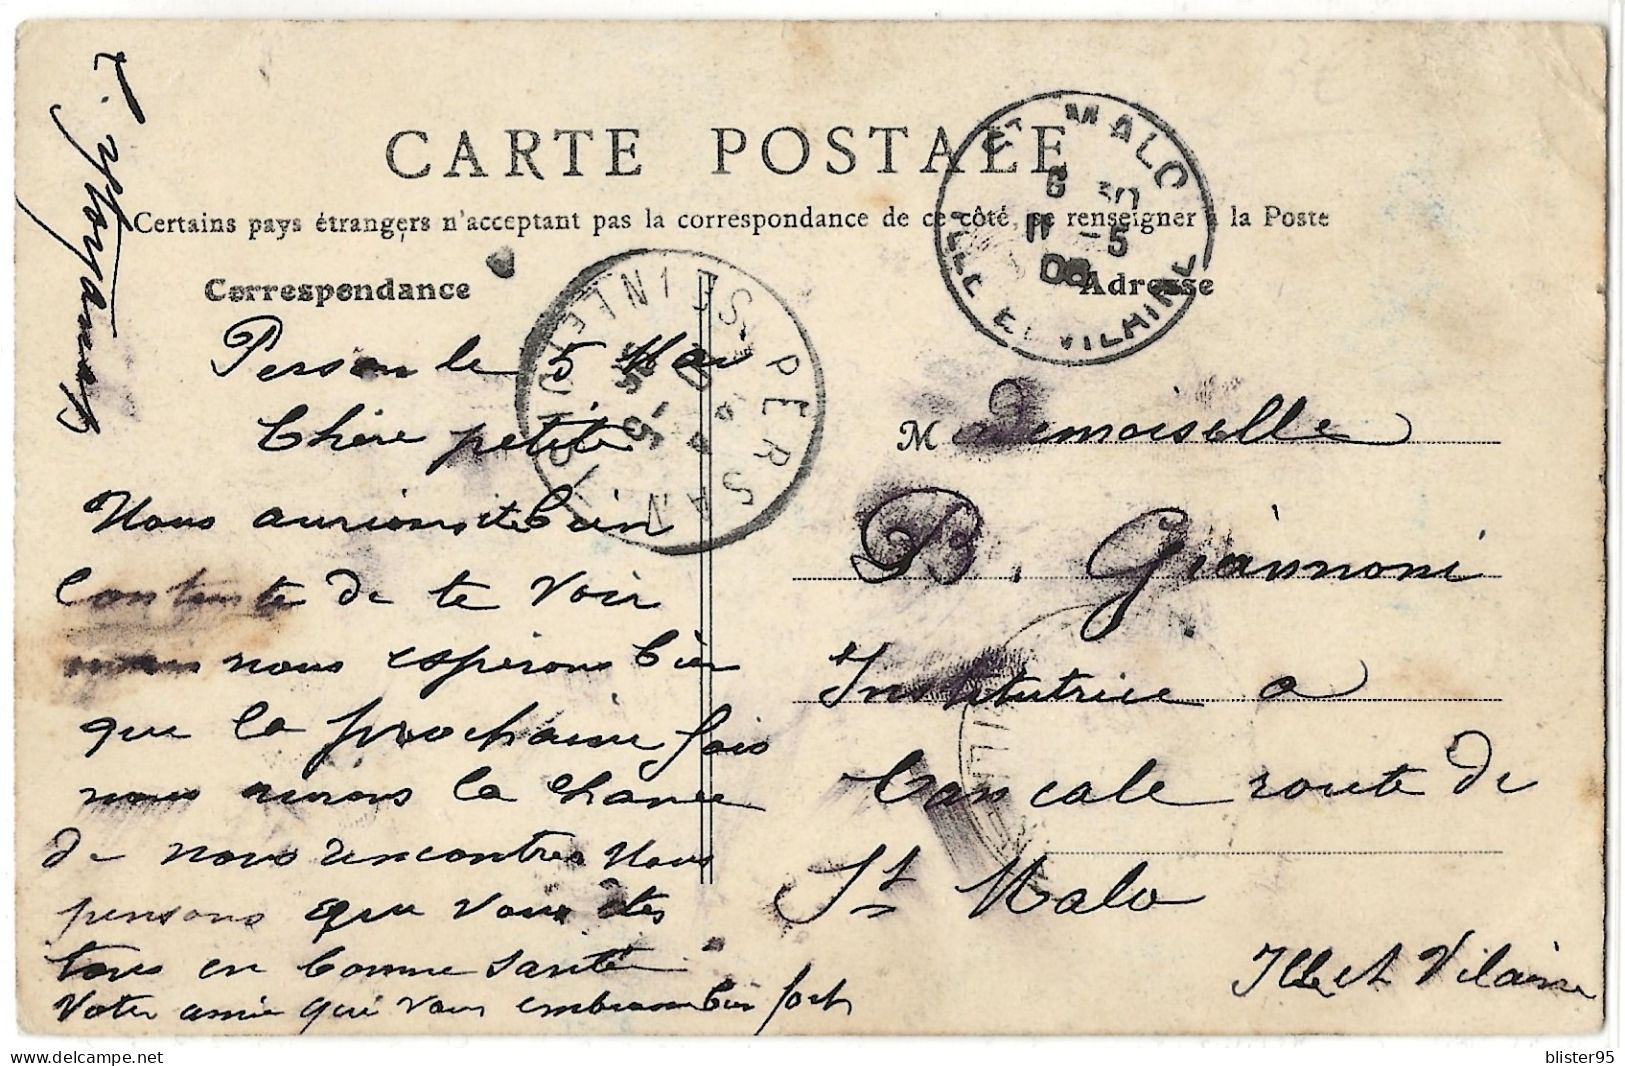 CARTE POSTALE
Certains pays étrangers n'acceptent pas la correspondance de ce côté, se renseigner à la Poste
Correspondance
Adresse
Persan le 5 Mai
Chère petite
Nous aurions été bien
Contente de te voir
nous espérons bien
que la prochaine fois
nous aurons la chance
de nous rencontrer Nous
pensons que vous êtes
tous en bonne santé
Votre amie qui vous embrasse bien fort
Mademoiselle
B. Giannoni
Institutrice a
Cancale route de
St Malo
Ille et Vilaine
ST MALO
6 30
11 -5
08
ILLE ET VILAINE
PERSAN
SEINE
blister95